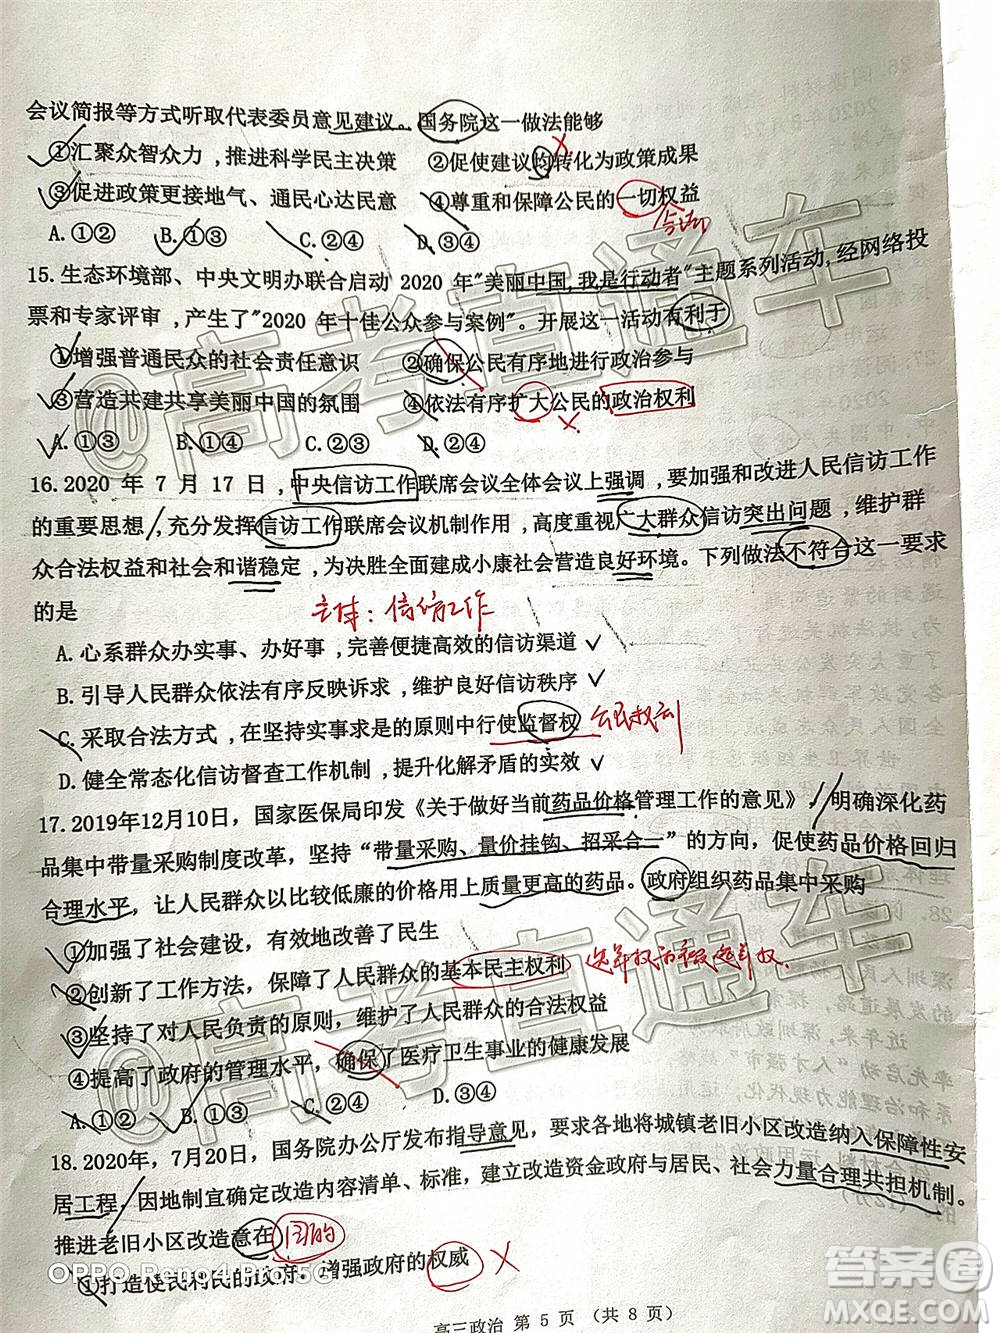 会议简报等方式听取代表委员意见建议。国务院这一做法能够
①汇聚众智众力，推进科学民主决策 ②促使建议均转化为政策成果
③促进政策更接地气、通民心达民意 ④尊重和保障公民的一切权益
合法
A.①② B.①③ C.②④ D.③④
15.生态环境部、中央文明办联合启动 2020 年"美丽中国,我是行动者"主题系列活动,经网络投
票和专家评审,产生了"2020 年十佳公众参与案例"。开展这一活动有利于
①增强普通民众的社会责任意识 ②确保公民有序地进行政治参与
③营造共建共享美丽中国的氛围 ④依法有序扩大公民的政治权利
A.①③ B.①④ C.②③ D.②④
16.2020 年 7 月 17 日,中央信访工作联席会议全体会议上强调,要加强和改进人民信访工作
的重要思想,充分发挥信访工作联席会议机制作用,高度重视广大群众信访突出问题,维护群
众合法权益和社会和谐稳定,为决胜全面建成小康社会营造良好环境。下列做法不符合这一要求
的是
主体：信访工作
A.心系群众办实事、办好事,完善便捷高效的信访渠道
B.引导人民群众依法有序反映诉求,维护良好信访秩序
C.采取合法方式,在坚持实事求是的原则中行使监督权 公民权利
D.健全常态化信访督查工作机制,提升化解矛盾的实效
17.2019年12月10日,国家医保局印发《关于做好当前药品价格管理工作的意见》,明确深化药
品集中带量采购制度改革,坚持“带量采购、量价挂钩、招采合一”的方向,促使药品价格回归
合理水平,让人民群众以比较低廉的价格用上质量更高的药品。政府组织药品集中采购
①加强了社会建设,有效地改善了民生
②创新了工作方法,保障了人民群众的基本民主权利 选举权和被选举权
③坚持了对人民负责的原则,维护了人民群众的合法权益
④提高了政府的管理水平,确保了医疗卫生事业的健康发展
A.①② B.①③ C.②④ D.③④
18.2020年,7月20日,国务院办公厅发布指导意见,要求各地将城镇老旧小区改造纳入保障性安
居工程,因地制宜确定改造内容清单、标准,建立改造资金政府与居民、社会力量合理共担机制。
推进老旧小区改造意在 目的
①打造便民利民的政府,增强政府的权威
高三政治 第 5 页 (共 8 页)
OPPO Reno4 Pro 5G
@高考直通车
@高考直通车
答案圈
MXQE.COM